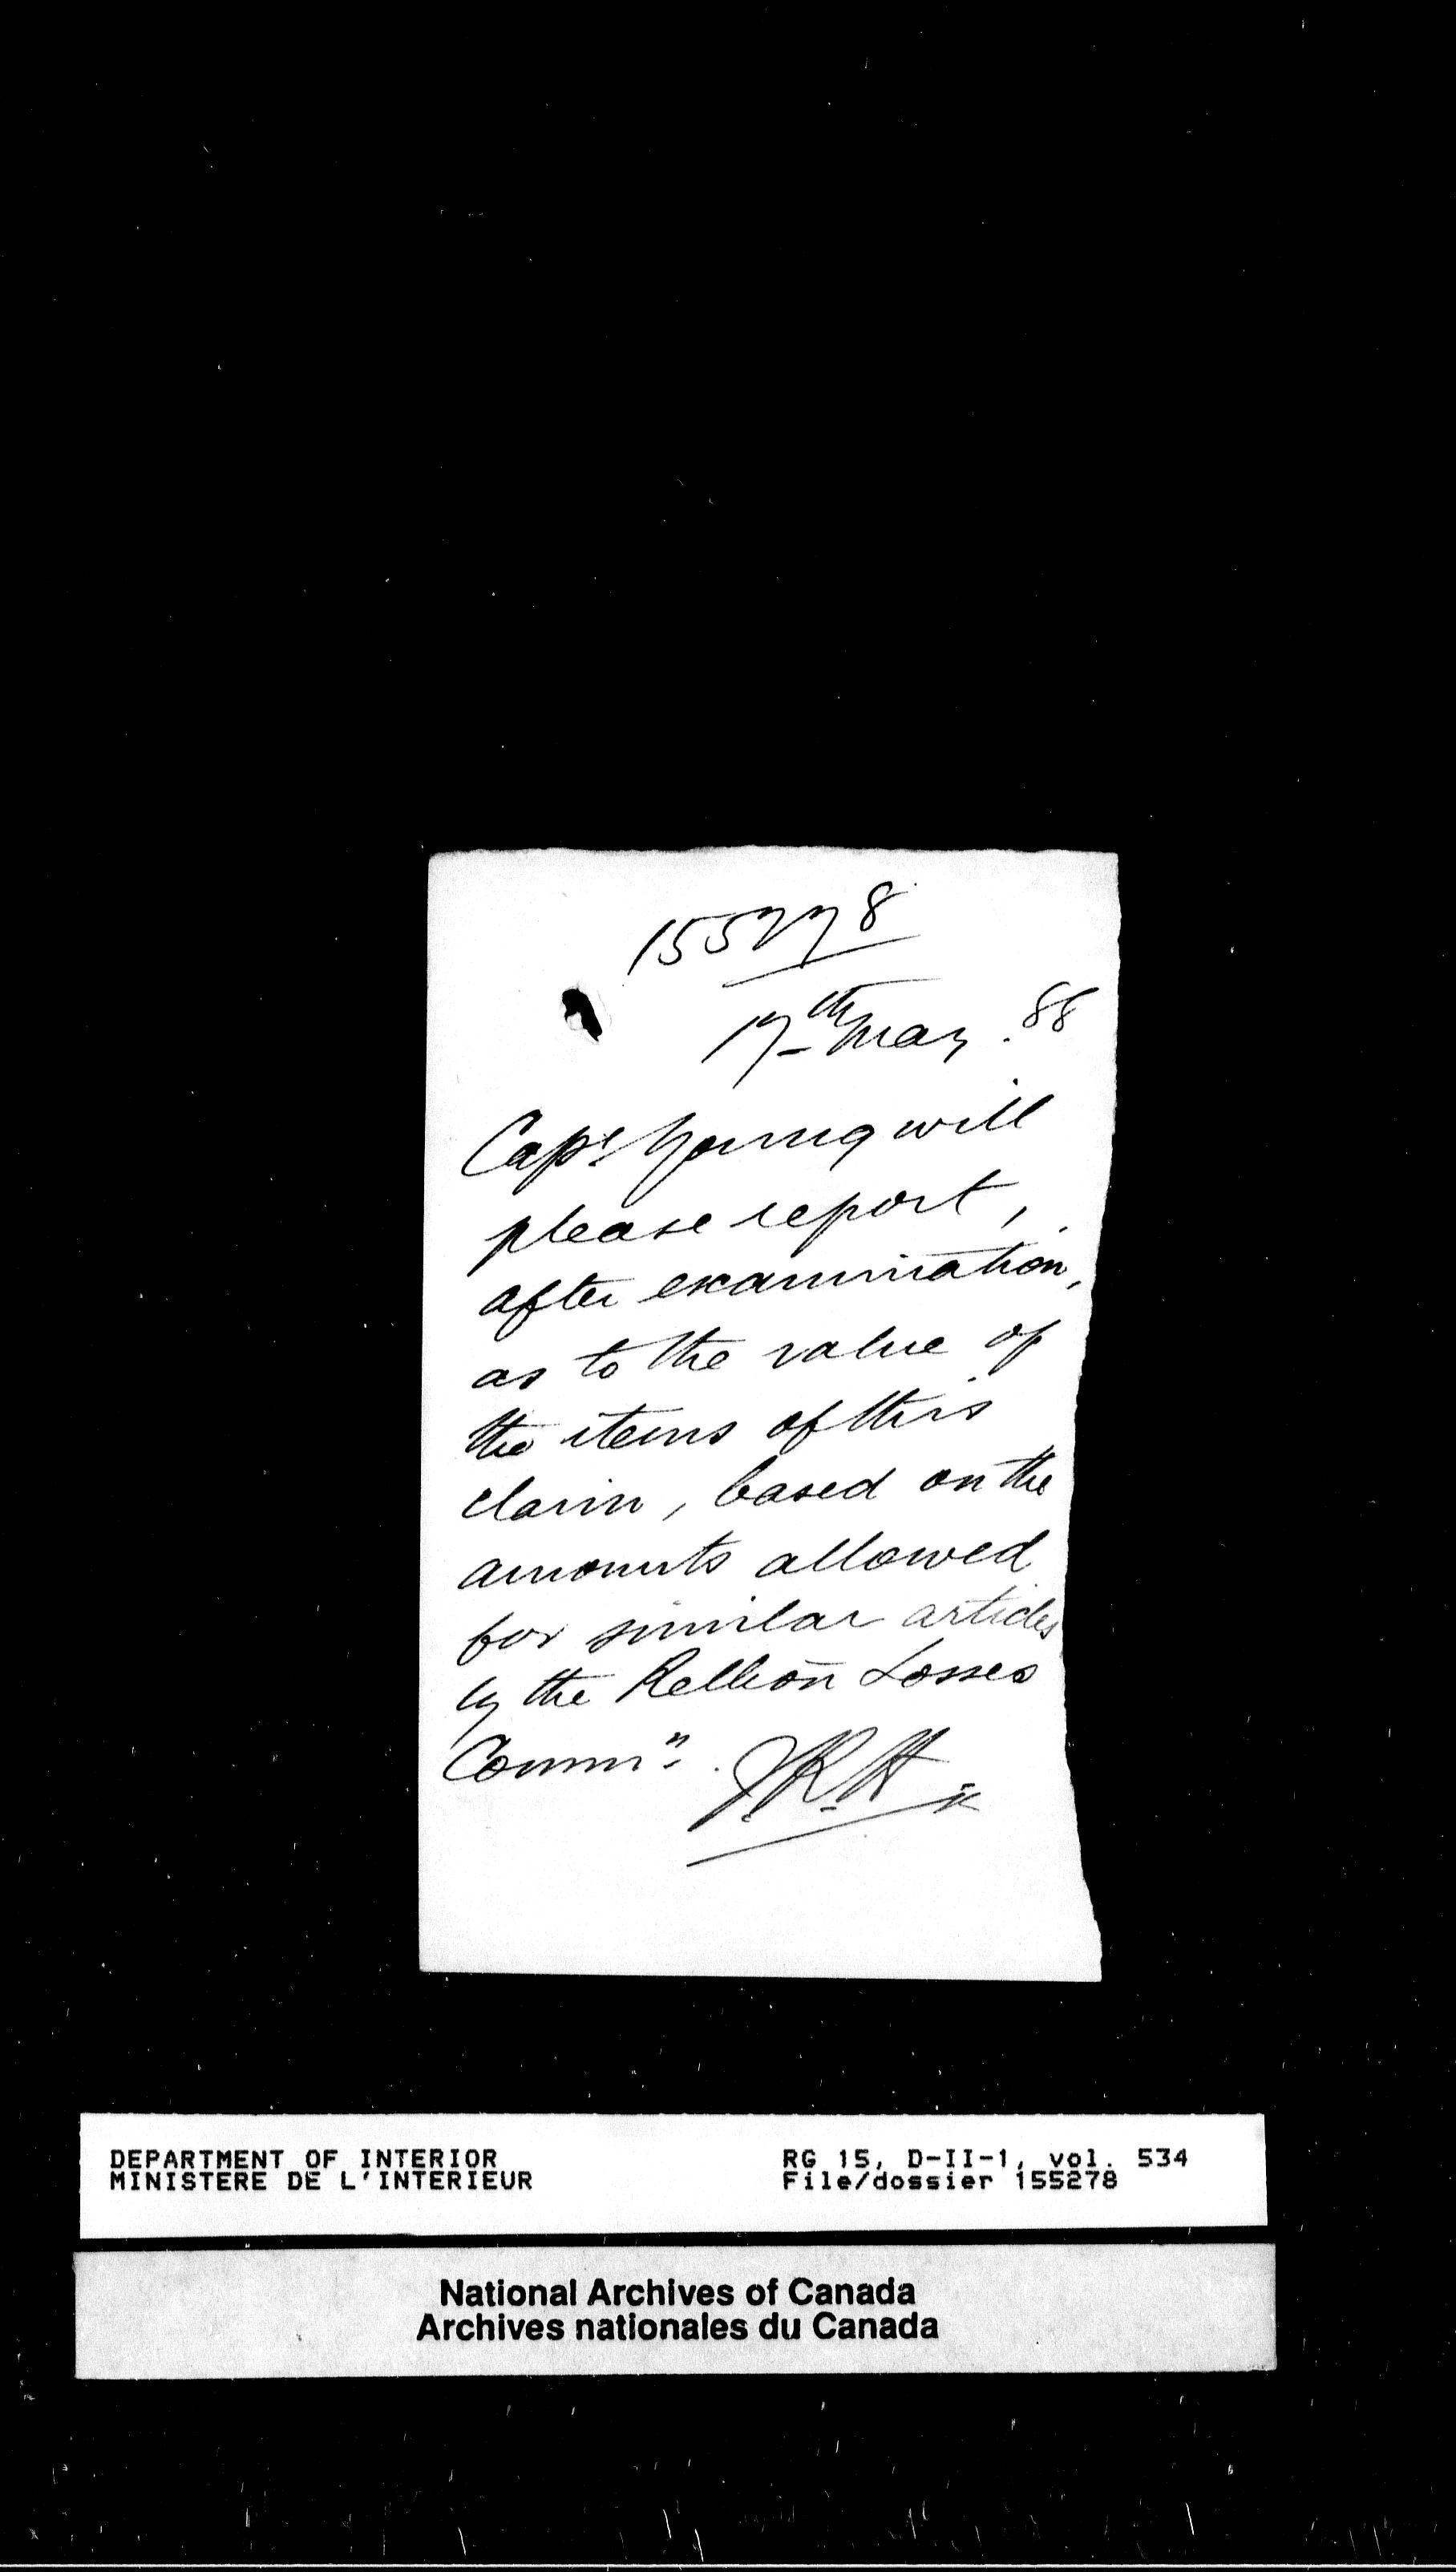 155278
17th May .88
Capt Young will
please report,
after examination,
as to the value of
the items of this
claim, based on the
amounts allowed
for similar articles
by the Rellion Losses
Commn.
J.R.H
DEPARTMENT OF INTERIOR
MINISTERE DE L'INTERIEUR
RG 15, D-II-1, vol. 534
File/dossier 155278
National Archives of Canada
Archives nationales du Canada